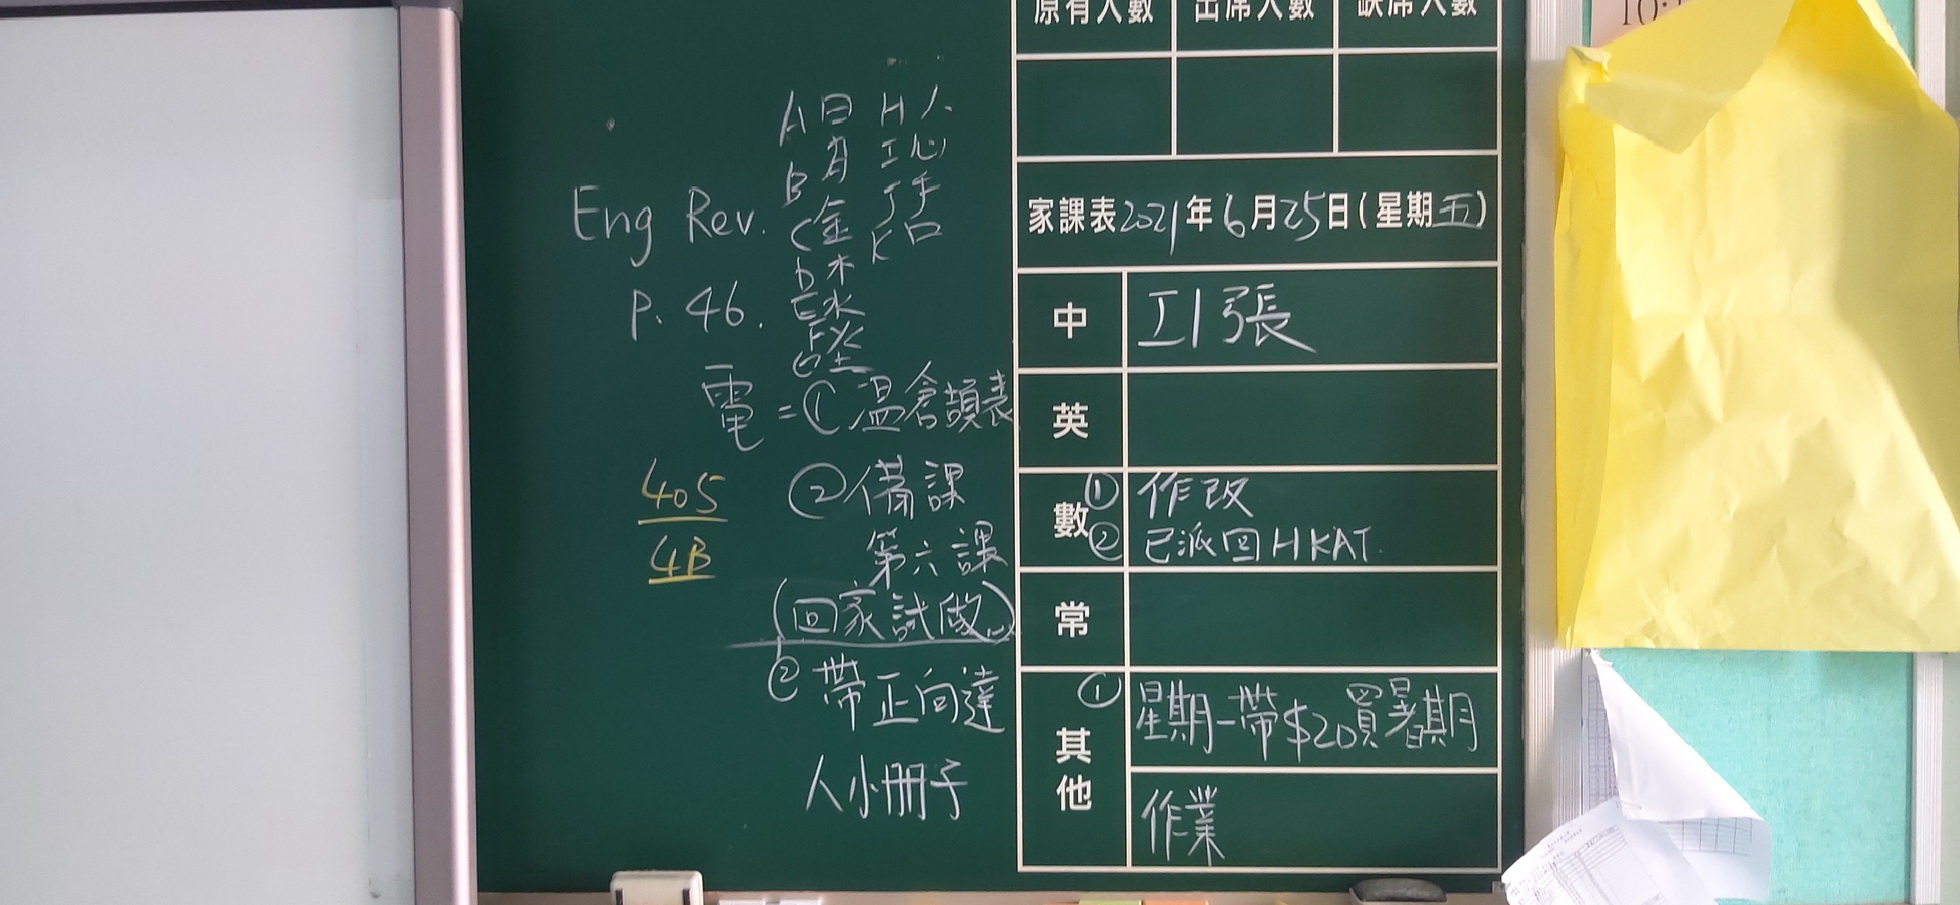 原有人數 出席人數 缺席人數
家課表2021年6月25日(星期五)
中 工1張
英
數 ① 作改
② 已派回HKAT
常
其他 ① 星期一帶$20買暑期
作業
A日 H人
B月 I心
C金 J手
D木 K口
E水
F火
G土
Eng Rev.
P. 46.
電=①溫倉頡表
②備課
第六課
(回家試做)
405
4B
②帶正向達
人小冊子